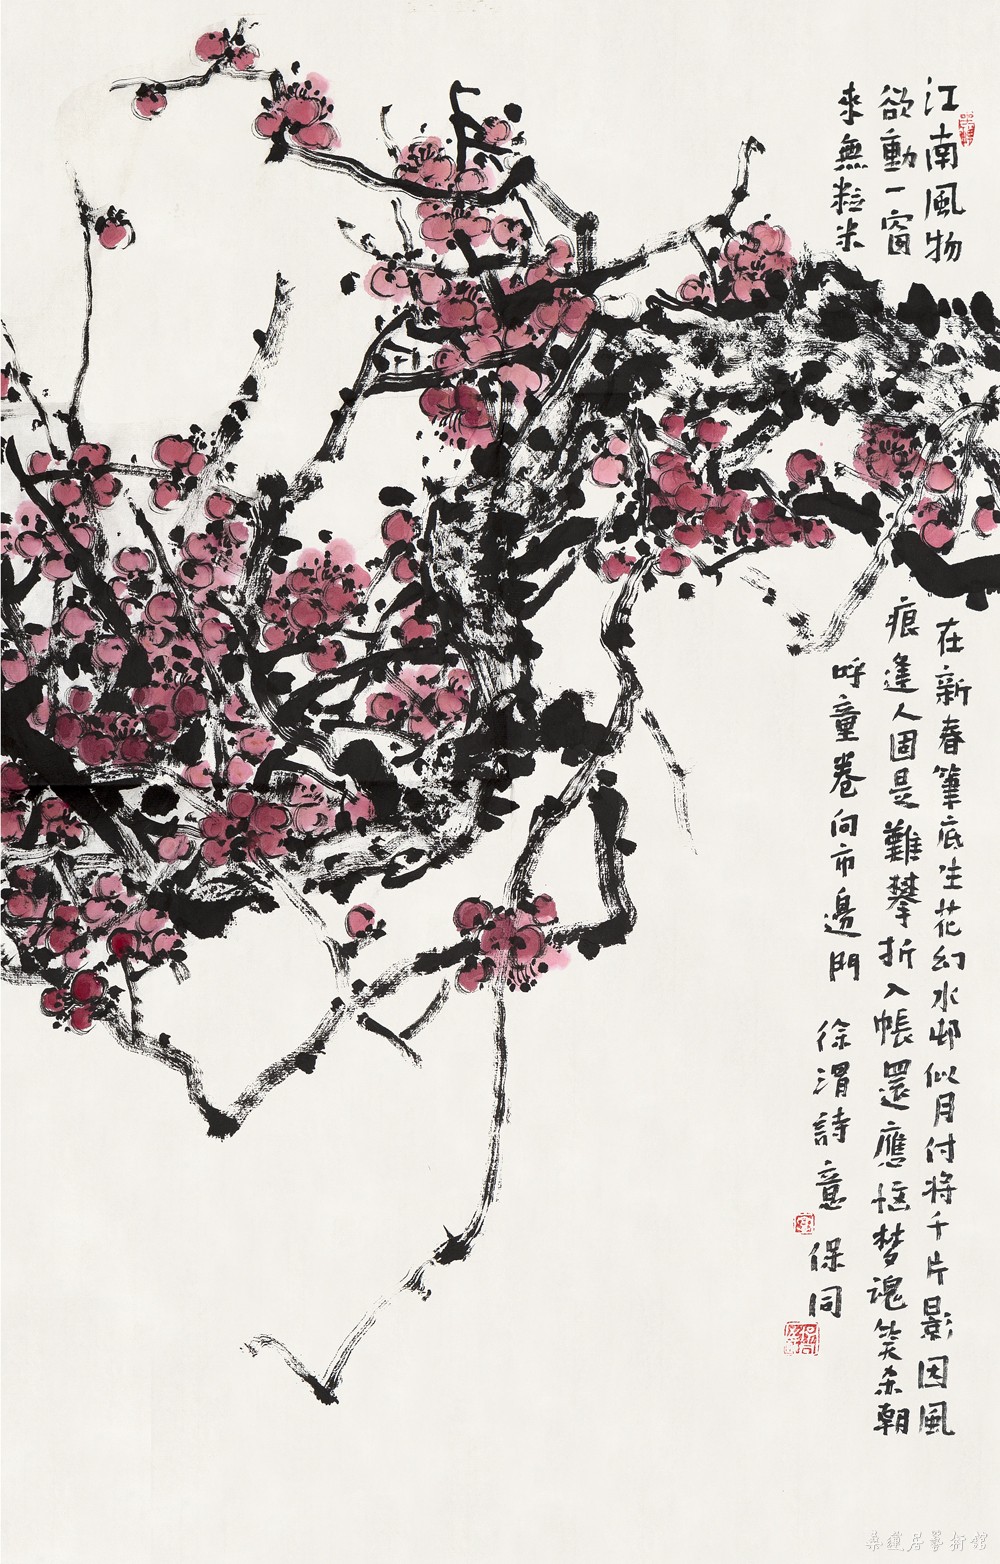 江南風物在新春筆底生花幻水邨似月付將千片影因風
欲動一窗痕逢人固是難攀折入帳還應惱梦魂笑杀朝
來無粒米呼童卷向市邊門
徐渭詩意
保同
桑蓮居藝術館